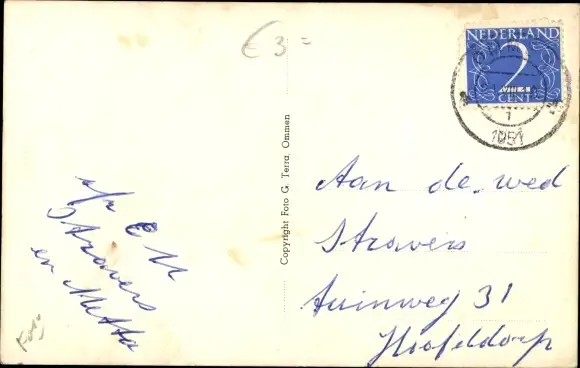 € 3 =
NEDERLAND
2
CENT
1
1951
Copyright Foto G. Terra, Ommen
Aan de wed
Stravers
tuinweg 31
Hoofddorp
E
Stravers
en Metta
Foto